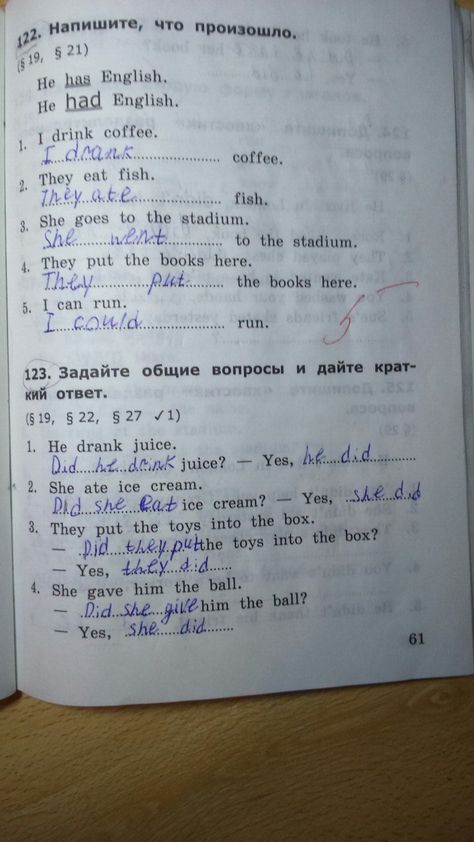 122. Напишите, что произошло.
(§ 19, § 21)
He has English.
He had English.
1. I drink coffee.
I drank coffee.
2. They eat fish.
They ate fish.
3. She goes to the stadium.
She went to the stadium.
4. They put the books here.
They put the books here.
5. I can run.
I could run.
5
123. Задайте общие вопросы и дайте крат-
кий ответ.
(§ 19, § 22, § 27 ✓1)
1. He drank juice.
Did he drink juice? — Yes, he did
2. She ate ice cream.
Did she eat ice cream? — Yes, she did
3. They put the toys into the box.
— Did they put the toys into the box?
— Yes, they did
4. She gave him the ball.
— Did she give him the ball?
— Yes, she did
61